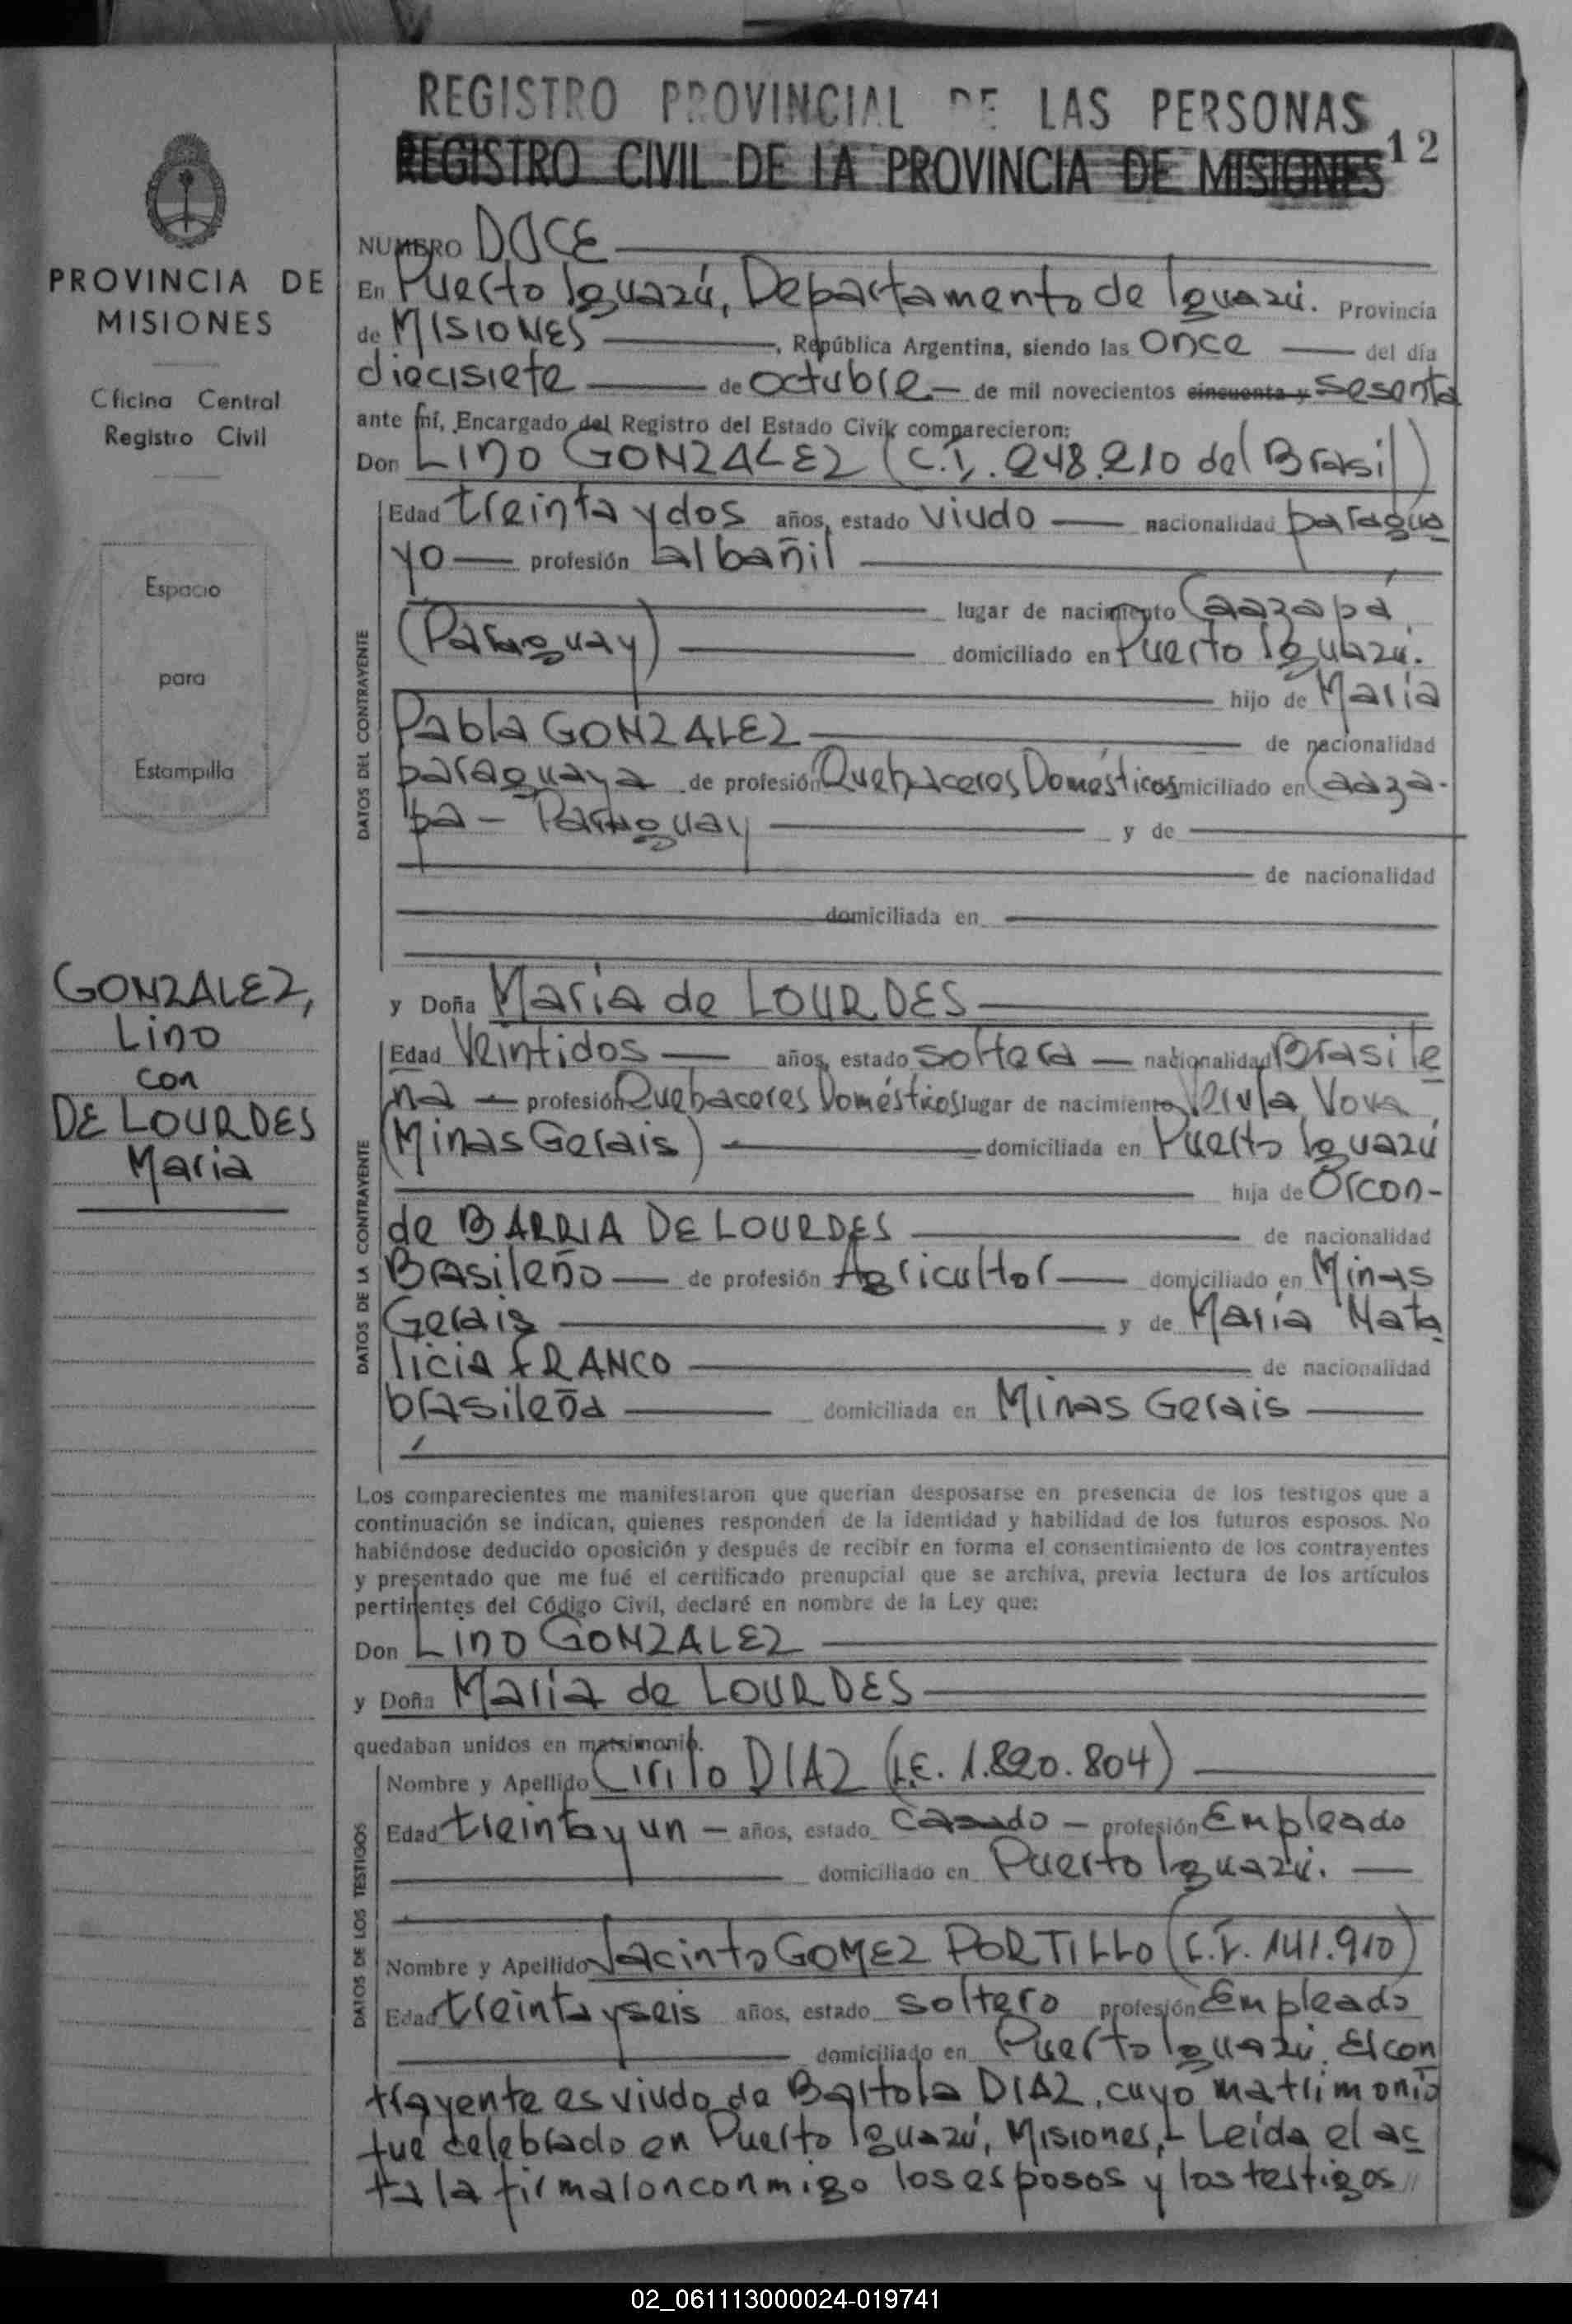 REGISTRO PROVINCIAL DE LAS PERSONAS
REGISTRO CIVIL DE LA PROVINCIA DE MISIONES
12
PROVINCIA DE
MISIONES
Oficina Central
Registro Civil
Espacio
para
Estampilla
GONZALEZ,
Lino
con
DE LOURDES
Maria
NUMERO DOCE
En Puerto Iguazú, Departamento de Iguazú. Provincia
de MISIONES, República Argentina, siendo las once del día
diecisiete de octubre de mil novecientos cincuenta y sesenta
ante mí, Encargado del Registro del Estado Civil, comparecieron:
Don LINO GONZALEZ (C.I. 248.210 del Brasil)
DATOS DEL CONTRAYENTE
Edad treinta y dos años, estado viudo nacionalidad paragua
yo profesión albañil
lugar de nacimiento Caazapá
(Paraguay) domiciliado en Puerto Iguazú.
hijo de María
Pabla GONZALEZ de nacionalidad
paraguaya de profesión Quehaceres Domésticos domiciliado en Caaza-
pa - Paraguay y de
de nacionalidad
domiciliada en
y Doña María de LOURDES
DATOS DE LA CONTRAYENTE
Edad Veintidos años, estado soltera nacionalidad Brasile
ña profesión Quehaceres Domésticos lugar de nacimiento Vova
(Minas Gerais) domiciliada en Puerto Iguazú
hija de Orcon-
de BARRIA DE LOURDES de nacionalidad
Brasileño de profesión Agricultor domiciliado en Minas
Gerais y de María Nata
licia FRANCO de nacionalidad
brasileña domiciliada en Minas Gerais
Los comparecientes me manifestaron que querían desposarse en presencia de los testigos que a
continuación se indican, quienes responden de la identidad y habilidad de los futuros esposos. No
habiéndose deducido oposición y después de recibir en forma el consentimiento de los contrayentes
y presentado que me fué el certificado prenupcial que se archiva, previa lectura de los artículos
pertinentes del Código Civil, declaré en nombre de la Ley que:
Don LINO GONZALEZ
y Doña María de LOURDES
quedaban unidos en matrimonio.
DATOS DE LOS TESTIGOS
Nombre y Apellido Cirilo DIAZ (L.E. 1.820.804)
Edad treinta y un años, estado casado profesión Empleado
domiciliado en Puerto Iguazú.
Nombre y Apellido Jacinto GOMEZ PORTILLO (C.I. 141.910)
Edad treinta y seis años, estado soltero profesión Empleado
domiciliado en Puerto Iguazú. El con
trayente es viudo de Bartola DIAZ, cuyo matrimonio
fué celebrado en Puerto Iguazú, Misiones.- Leída el ac
ta la firmaron conmigo los esposos y los testigos //
02_061113000024-019741